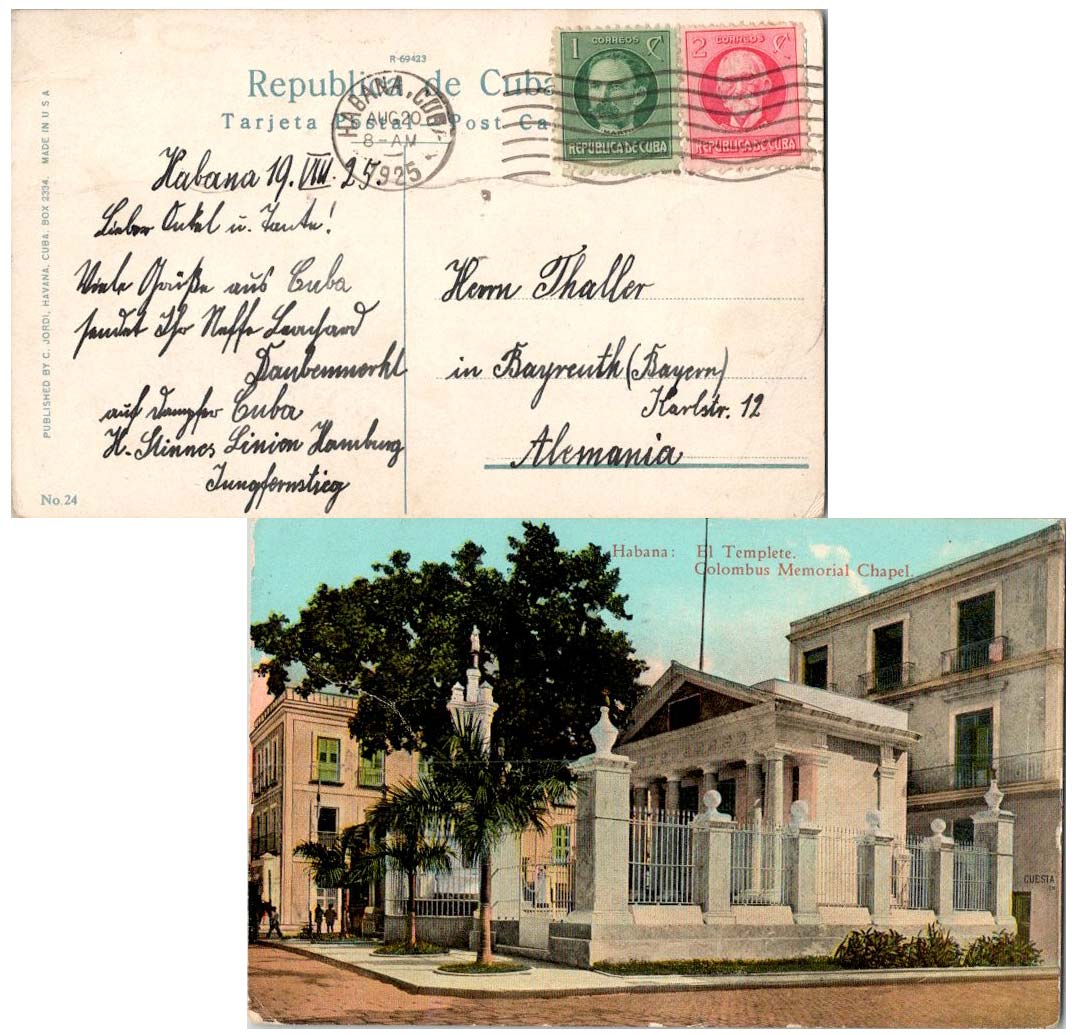 R-69423
Republica de Cuba
Tarjeta Postal - Post Ca
HABANA, CUBA
AUG 20
8-AM
1925
1 CORREOS ¢
MARTI
REPUBLICA DE CUBA
2 CORREOS ¢
REPUBLICA DE CUBA
PUBLISHED BY C. JORDI, HAVANA, CUBA. BOX 2334. MADE IN U S A
Habana 19. VIII. 25
Lieber Onkel u. Tante!
Viele Grüße aus Cuba
sendet Ihr Neffe
auf Dampfer Cuba
H. Stinnes Linien Hamburg
Jungfernstieg
No. 24
Herrn Thaller
in Bayreuth (Bayern)
Karlstr. 12
Alemania
Habana: El Templete.
Colombus Memorial Chapel.
CUESTA